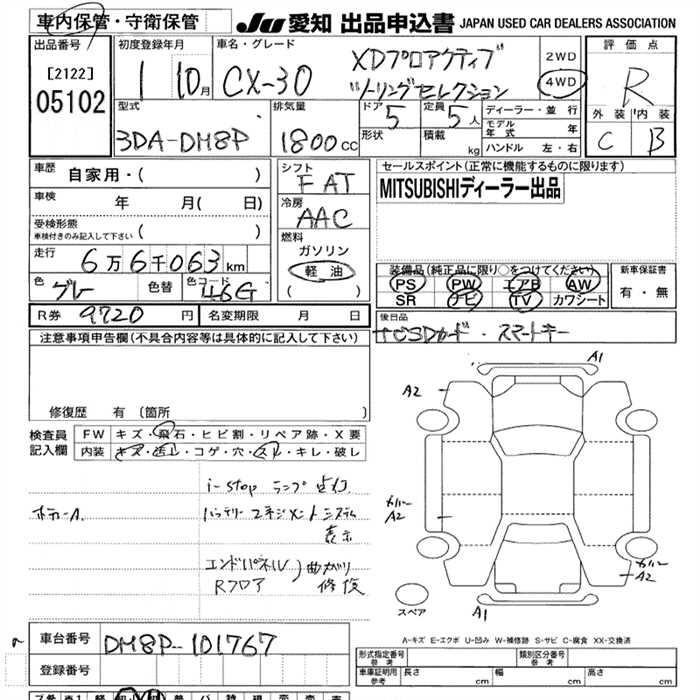 車内保管・守衛保管 JU 愛知 出品申込書 JAPAN USED CAR DEALERS ASSOCIATION
出品番号 初度登録年月 車名・グレード 評価点
[2122] 1 10月 CX-30 XDプロアクティブ 2WD R
05102 ツーリングセレクション 4WD
型式 排気量 ドア 定員 ディーラー・並行 外装 内装
3DA-DM8P 1800cc 5 5人 モデル年式 年 C B
形状 積載 kg ハンドル 左・右
車歴 自家用・( ) シフト セールスポイント(正常に機能するものに限ります)
F AT MITSUBISHIディーラー出品
車検 年 月( 日) 冷房
AAC
受検形態
車検付きのみ記入して下さい ( ) 燃料
走行 6万6千063km ガソリン
軽油
( )
装備品(純正品に限り○をつけてください) 新車保証書
色 グレー 色替 色コード 46G PS PW エアB AW 有・無
SR ナビ TV カワシート
R券 9720円 名変期限 月 日 後日品
ナビSDカード・スマートキー
注意事項申告欄(不具合内容等は具体的に記入して下さい)
修復歴 有(箇所 )
検査員 FW キズ・飛石・ヒビ割・リペア跡・X要
記入欄 内装 キズ・汚レ・コゲ・穴・スレ・キレ・破レ
A1
A2
i-stop ランプ点灯
ボデーA. バッテリーマネジメントシステム
表示
カバー
A2
エンドパネル
Rフロア )曲がり
修復
カバー
A2
スペア
A1
A-キズ E-エクボ U-凹み W-補修跡 S-サビ C-腐食 XX-交換済
車台番号 DM8P-101767
登録番号
形式指定番号 参考 類別区分番号 参考
車庫証明用 参考 長さ cm 幅 cm 高さ cm